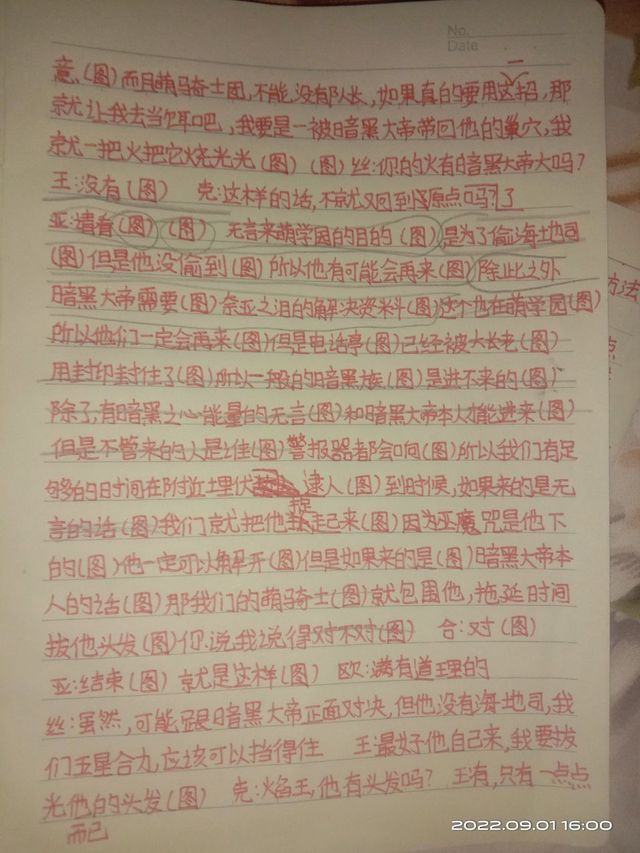 No.
Date
意(图)而且萌马奇士团,不能没有队长,如果真的要用这一招,那
就让我去当饵吧,我要是一被暗黑大帝带回他的巢穴,我
就一把火把它烧光光(图)(图)丝:你的火有暗黑大帝大吗?
王:没有(图) 克:这样的话,不就又回到原点了吗?
亚:请看(图)(图) 无言来萌学园的目的(图)是为了偷海地司
(图)但是他没偷到(图)所以他有可能会再来(图)除此之外
暗黑大帝需要(图)奈亚之泪的解决资料(图)这个也在萌学园(图)
所以他们一定会再来(图)但是电话亭(图)已经被大长老(图)
用封印封住了(图)所以一般的暗黑族(图)是进不来的(图)
除了,有暗黑之心能量的无言(图)和暗黑大帝本人才能进来(图)
但是不管来的人是谁(图)警报器都会响(图)所以我们有足
够多的时间在附近埋伏 逮人(图)到时候,如果来的是无
言的话(图)我们就把他捉起来(图)因为巫魔咒是他下
的(图)他一定可以解开(图)但是如果来的是(图)暗黑大帝本
人的话(图)那我们的萌马奇士(图)就包围他,拖延时间
拔他头发(图)你说我说得对不对(图) 合:对(图)
亚:结束(图)就是这样(图) 欧:满有道理的
丝:虽然,可能跟暗黑大帝正面对决,但他没有海地司,我
们五星合力,应该可以挡得住 王:最好他自己来,我要拔
光他的头发(图) 克:焰王,他有头发吗? 王:有,只有一点点
而已
方法
2022.09.01 16:00